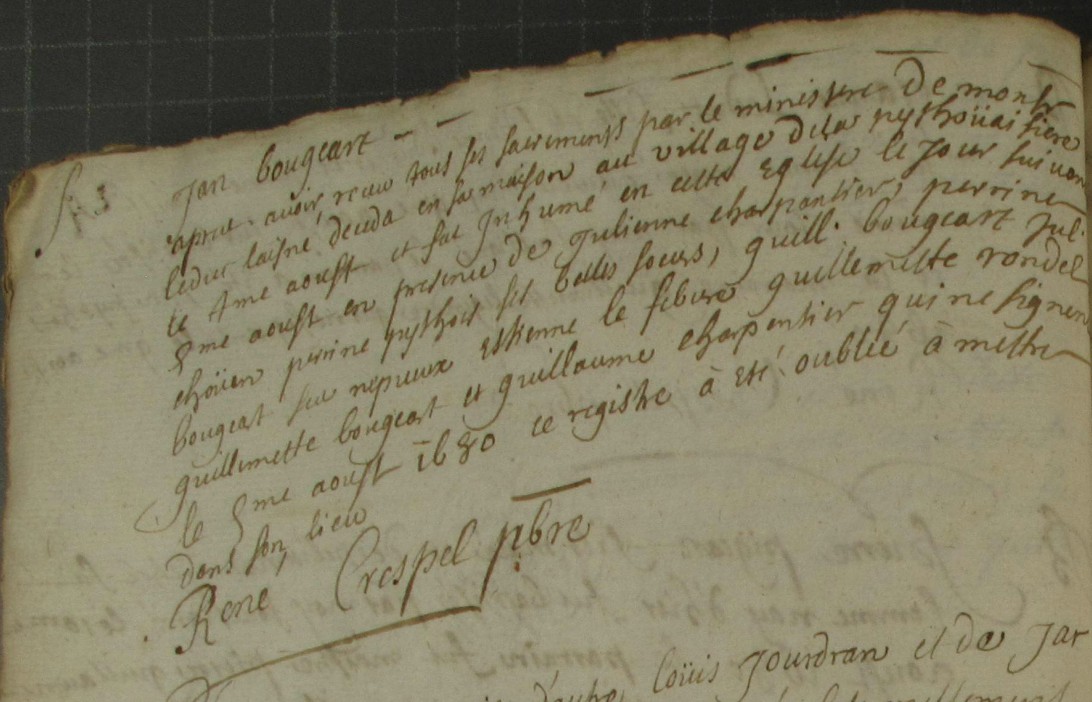 S. 3
Jan bougeart
apres avoir receu tous ses sacrements par le ministere De monsr
leduc laisné deceda en sa maison au village dela pythoüaisiere
le 4me aoust et fut Inhumé en cette Eglise le Jour suivan
5me aoust en presence de Julienne charpantier, perrine
choüen perrine pythois ses belles soeurs, guill. bougeart Jul.
bougeart ses nepveux Estienne le febure guillemette rondel
guillemette bougeart et guillaume charpentier qui ne signen
le 5me aoust 1680 ce registre à esté oublié à mettre
dans son lieu
Rene Crespel pbre
Loüis Jourdran et de Jar